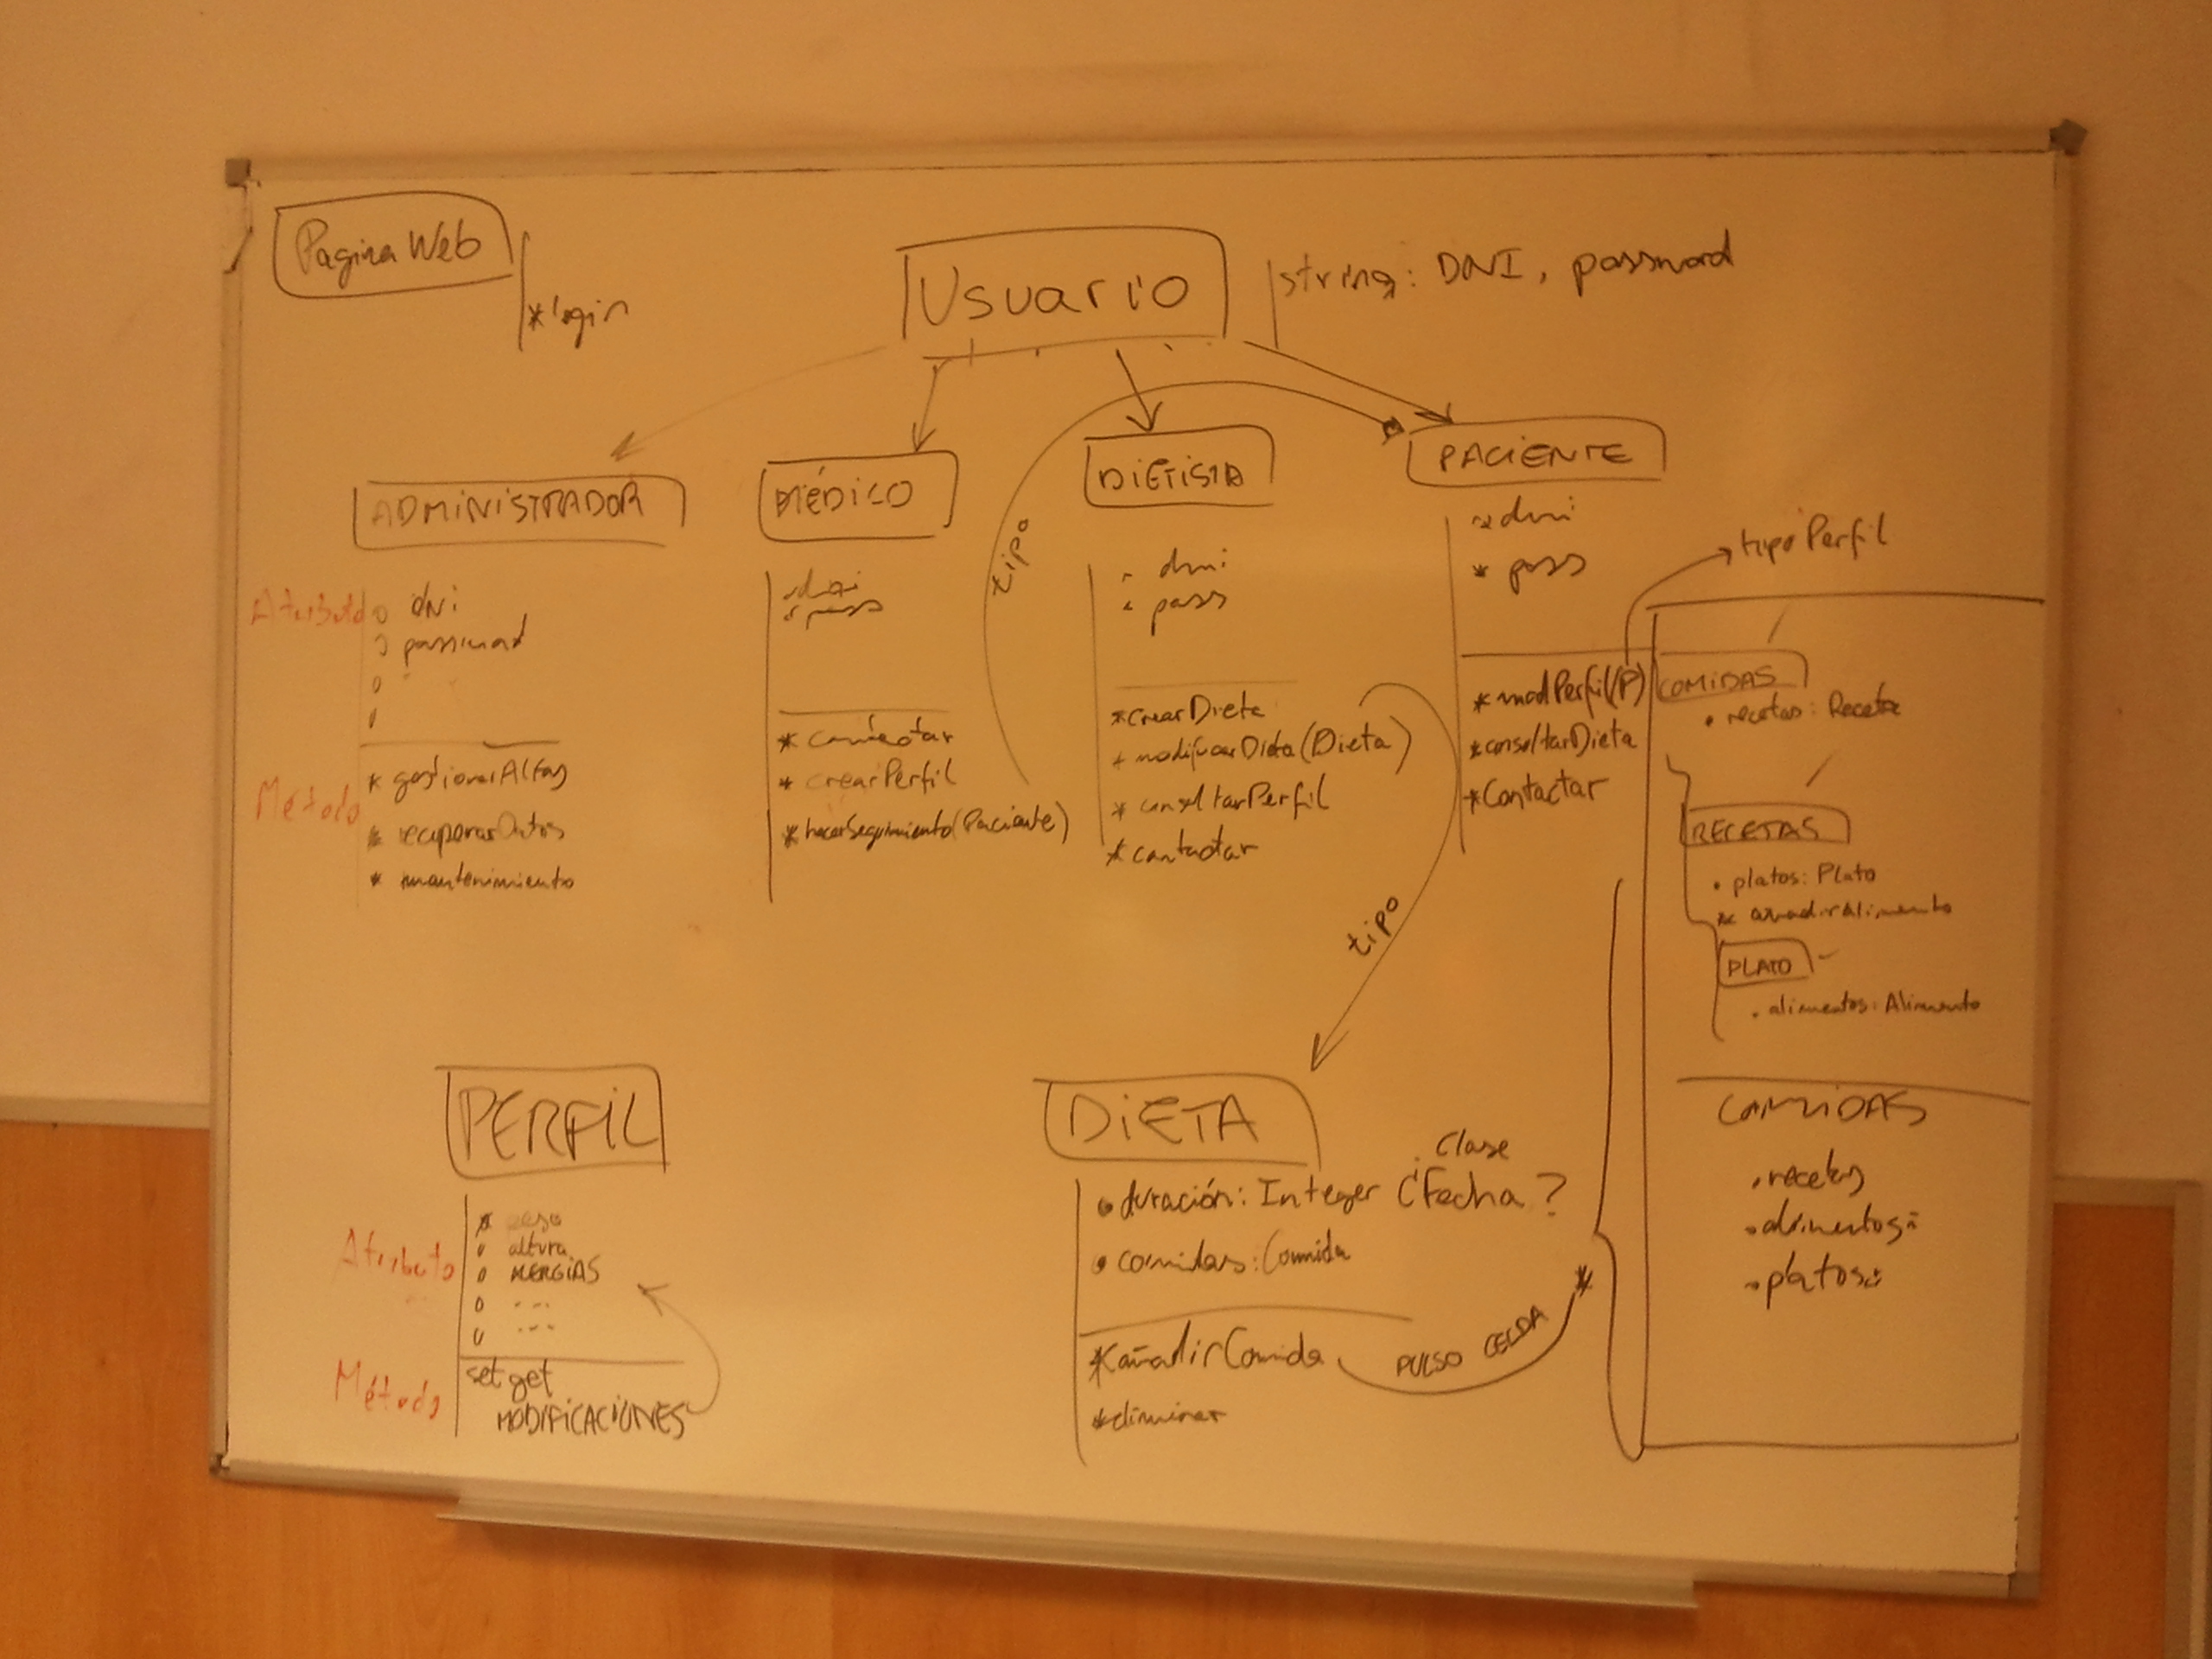 Pagina Web
*login
Usuario
string: DNI, password
ADMINISTRADOR
Atributo
dni
password
Método
* gestionarAltas
* recuperarDatos
* mantenimiento
MÉDICO
dni
pass
* contactar
* crearPerfil
* hacerSeguimiento(Paciente)
tipo
DIETISTA
- dni
- pass
*crearDieta
* modificarDieta(Dieta)
* consultarPerfil
* contactar
tipo
PACIENTE
* dni
* pass
*modPerfil(P)
*consultarDieta
*Contactar
tipo Perfil
COMIDAS
• recetas: Receta
RECETAS
• platos: Plato
* añadirAlimento
PLATO
• alimentos: Alimento
COMIDAS
• recetas
• alimentos
• platos
PERFIL
Atributo
* peso
altura
ALERGIAS
---
---
Método
set get
MODIFICACIONES
DIETA
Clase
• duración: Integer ¿Fecha?
• comidas: Comida
*añadirComida
PULSO CELDA
*
*eliminar